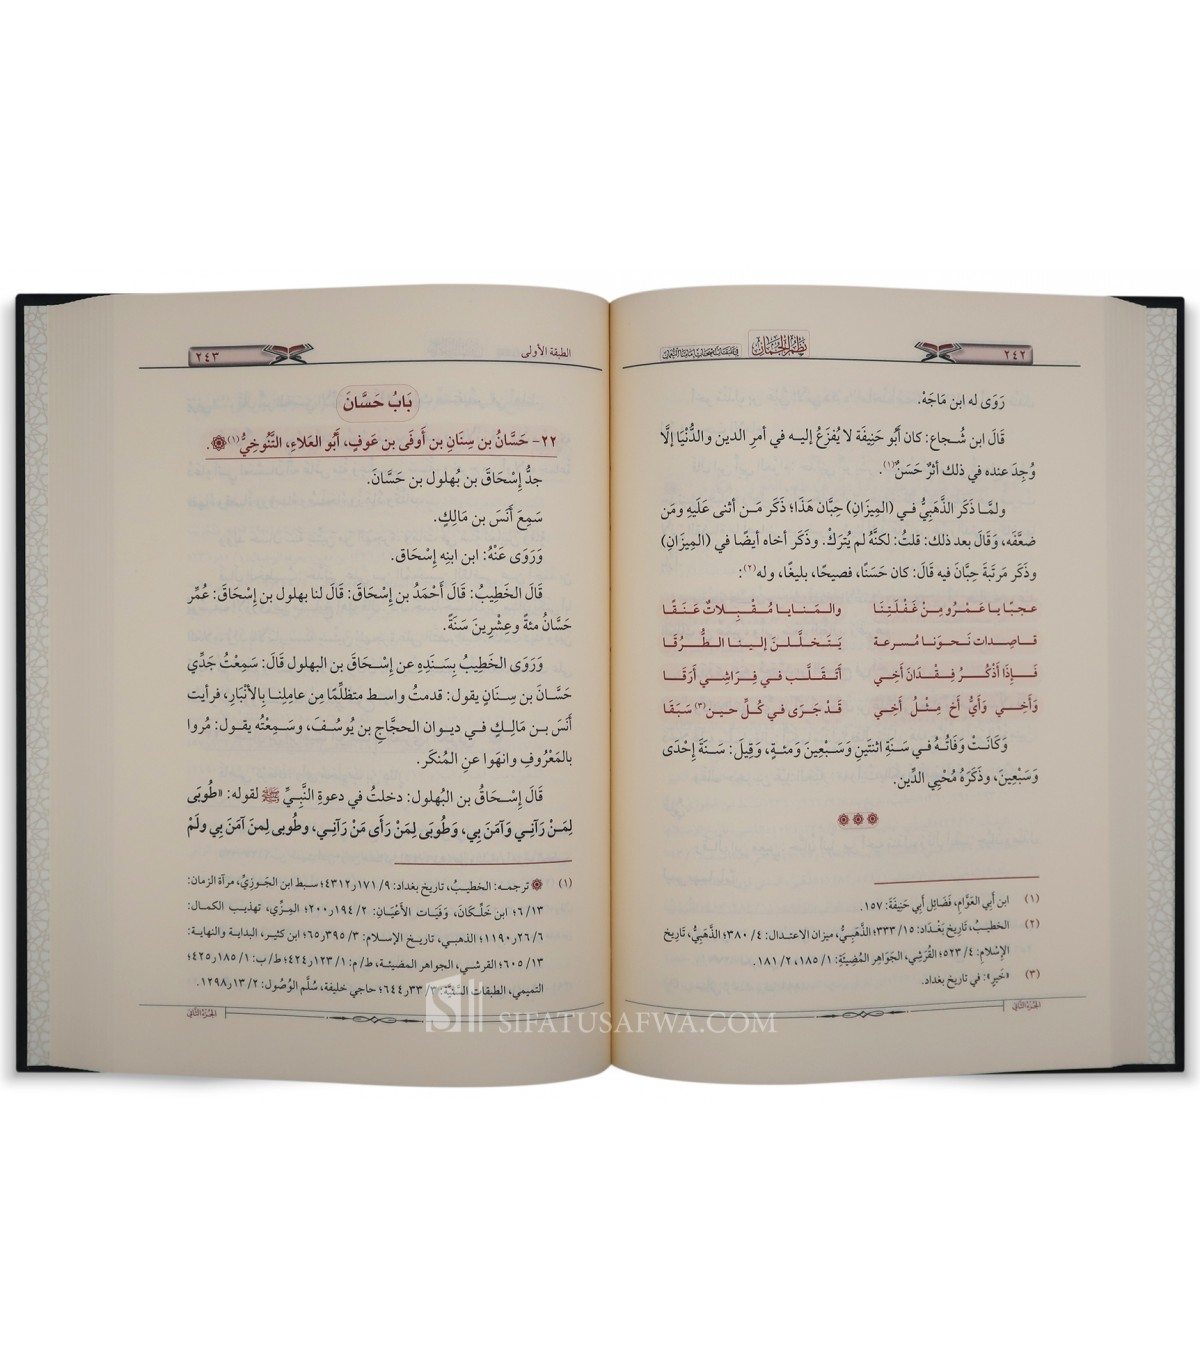 ٢٤٢
نظم الجمان
رَوَى له ابن مَاجَهْ.
قَالَ ابن شُجاع: كان أَبُو حَنِيفَة لا يُفزَعُ إليه في أمرِ الدين والدُّنْيَا إلَّا
وُجِدَ عنده في ذلك أثرٌ حَسَنٌ(١).
ولمَّا ذَكَر الذَّهَبِيُّ في (المِيزَانِ) حِبَّان هَذَا؛ ذكَر مَن أثنى عَلَيهِ ومَن
ضعَّفَه، وَقَالَ بعد ذلك: قلتُ: لكنَّهُ لم يُترَكْ. وذكَر أخاه أيضًا في (المِيزَانِ)
وذكَر مَرتَبَةَ حِبَّانَ فيه قَالَ: كان حَسَنًا، فصيحًا، بليغًا، وله(٢):
عجبًا يا عَمْرُو مِنْ غَفْلَتِنَا والمَنايا مُقْبِلاتٌ عَنَقًا
قاصِدات نَحوَنا مُسرعة يَتَخلَّلنَ إلينا الطُّرُقَا
فَإِذَا أَذْكُرُ فِقْدَانَ أَخِي أَتَقلَّب في فِرَاشِي أَرَقَا
وَأَخِي وَأَيُّ أخ مِثْلُ أخِي قَدْ جَرَى في كُلِّ حين(٣) سَبَقَا
وَكَانَتْ وَفَاتُهُ في سَنَةِ اثنتَينِ وَسَبْعِينَ وَمئةٍ، وَقِيلَ: سَنَةَ إِحْدَى
وَسَبْعِينَ، وذكَرَهُ مُحْيِي الدِّين.
(١) ابن أَبِي العَوَّامِ، فَضَائِل أَبِي حَنِيفَةَ: ١٥٧.
(٢) الخطِيبُ، تَارِيخ بَغْدَاد: ١٥/ ٣٣٣؛ الذَّهَبِيُّ، ميزان الاعتدال: ٤/ ٣٨٠؛ الذَّهَبِيُّ، تَارِيخ
الإِسْلامِ: ٤/ ٥٢٣؛ القُرَشِي، الجَوَاهِر المُضِيَّةِ: ١/ ١٨٥، ٢/ ١٨١.
(٣) «خَيرٍ»: في تاريخ بغداد.
الجزء الثاني
الطبقة الأولى
٢٤٣
بَابُ حَسَّانَ
٢٢- حَسَّانُ بن سِنَانِ بن أَوفَى بن عَوفٍ، أَبُو العَلاءِ، التَّنُوخِيُّ(١).
جدُّ إِسْحَاقَ بن بُهلول بن حَسَّانَ.
سَمِعَ أَنَسَ بن مَالِكٍ.
وَرَوَى عَنْهُ: ابن ابنِه إِسْحَاق.
قَالَ الخَطِيبُ: قَالَ أَحْمَدُ بن إِسْحَاقَ: قَالَ لنا بهلول بن إِسْحَاقَ: عُمِّر
حَسَّانُ مئةً وعِشْرِينَ سَنَةً.
وَرَوَى الخَطِيبُ بِسَنَدِهِ عن إِسْحَاقَ بن البهلول قَالَ: سَمِعْتُ جَدِّي
حَسَّانَ بن سِنَانٍ يقول: قدمتُ واسط متظلِّمًا مِن عامِلِنا بِالأَنْبَارِ، فرأيت
أَنَسَ بن مَالِكٍ في ديوان الحجَّاج بن يُوسُفَ، وسَمِعْتُه يقول: مُروا
بالمَعْرُوفِ وانهَوا عنِ المُنكَر.
قَالَ إِسْحَاقُ بن البُهلول: دخلتُ في دعوةِ النَّبِيِّ ﷺ لقوله: «طُوبَى
لِمَنْ رَآنِي وَآمَنَ بِي، وَطُوبَى لِمَنْ رَأَى مَنْ رَآنِي، وطُوبى لِمنَ آمَنَ بِي ولَمْ
(١) ترجمه: الخطيبُ، تاريخ بغداد: ٩/ ١٧١ر٤٣١٢؛ سبط ابن الجَوزِيِّ، مرآة الزمان:
٦/١٣؛ ابن خَلِّكَان، وَفَيَات الأَعْيَانِ: ٢/ ١٩٤ر٢٠٠؛ المِزِّي، تهذيب الكمال:
٦/ ٢٦ر١١٩٠؛ الذهبي، تاريخ الإسلام: ٣/ ٣٩٥ر٦٥؛ ابن كثير، البداية والنهاية:
١٣/ ٦٠٥؛ القرشي، الجواهر المضيئة، ط/م: ١/ ١٢٣ر٤٢٤؛ ط/ب: ١/ ١٨٥ر٤٢٥؛
التميمي، الطبقات السَّنيَّة: ٣/ ٣٣ر٦٤٤؛ حاجي خليفة، سُلَّم الوُصُول: ٢/ ١٣ر١٢٩٨.
الجزء الثاني
SIFATUSAFWA.COM